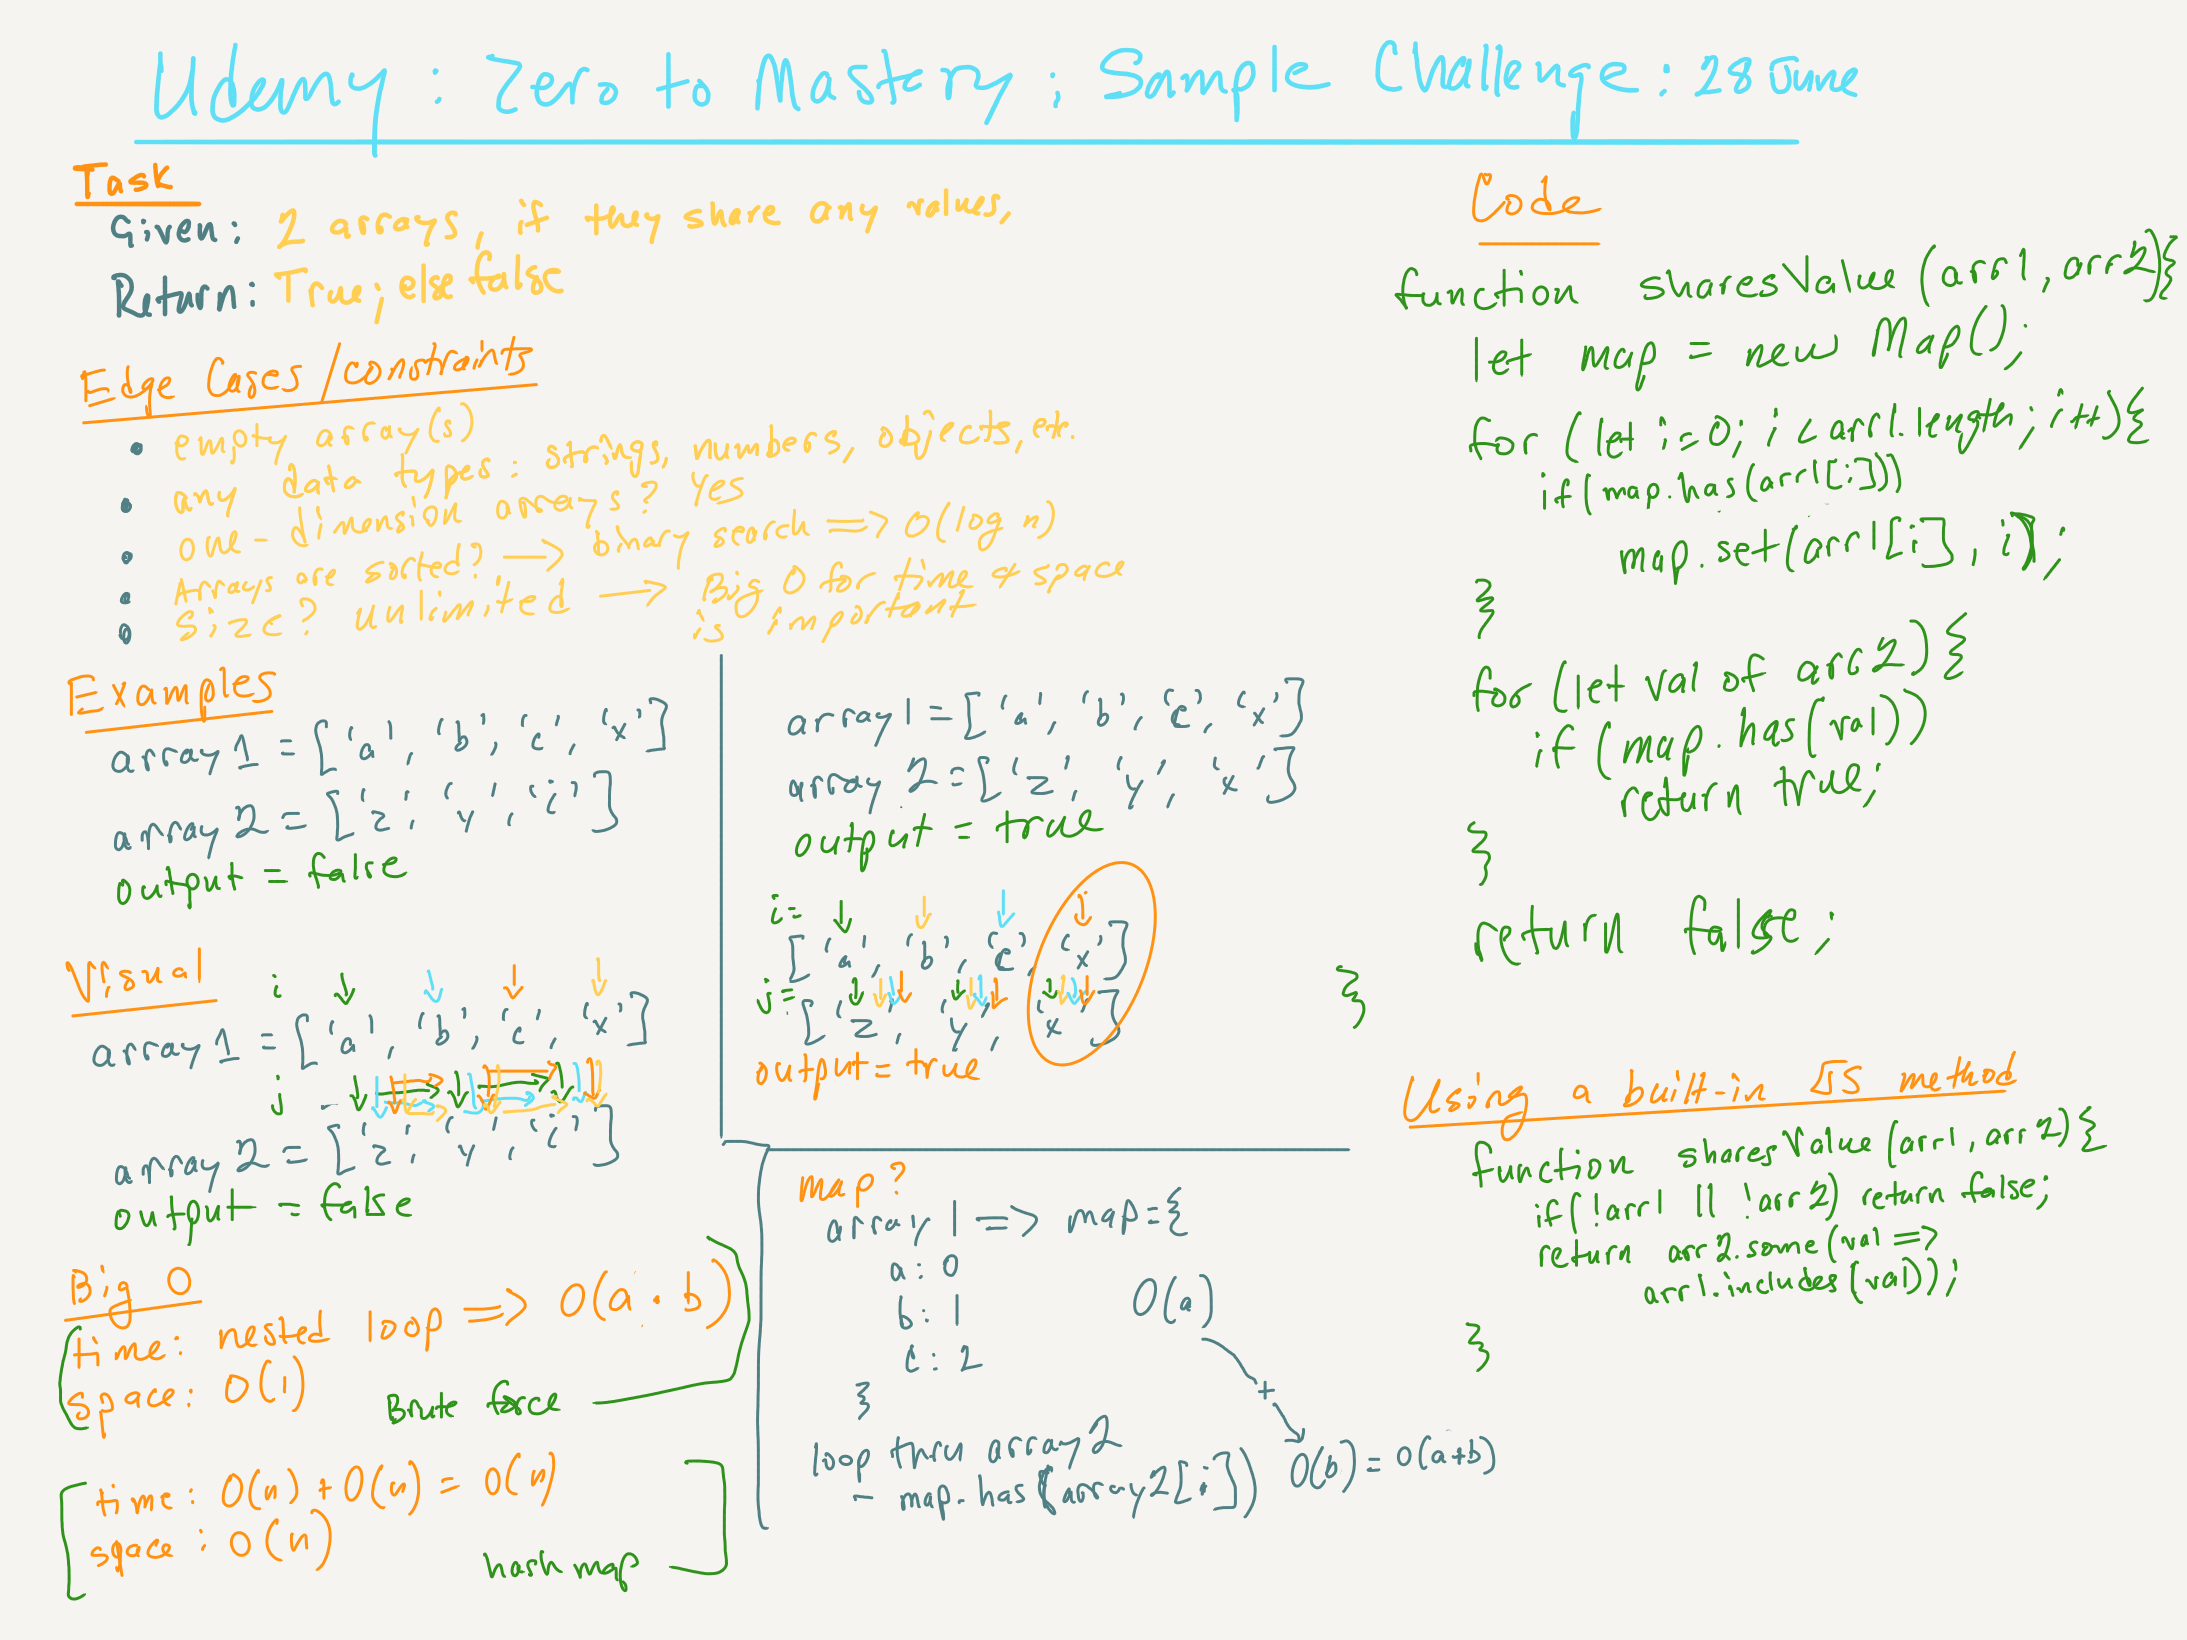 Udemy: Zero to Mastery; Sample Challenge: 28 June
Task
Given: 2 arrays, if they share any values,
Return: True; else false
Edge Cases/constraints
• empty array(s)
• any data types: strings, numbers, objects, etc.
• one-dimension arrays? Yes
• Arrays are sorted? → binary search => O(log n)
• Size? unlimited → Big O for time & space
is important
Examples
array 1 = ['a', 'b', 'c', 'x']
array 2 = ['z', 'y', 'i']
output = false
array 1 = ['a', 'b', 'c', 'x']
array 2 = ['z', 'y', 'x']
output = true
i= ↓ ↓ ↓ ↓
['a', 'b', 'c', 'x']
j= ↓ ↓ ↓ ↓ ↓ ↓ ↓ ↓ ↓ ↓ ↓ ↓
['z', 'y', 'x']
output = true
Visual
i ↓ ↓ ↓ ↓
array 1 = ['a', 'b', 'c', 'x']
j
array 2 = ['z', 'y', 'i']
output = false
Big O
time: nested loop => O(a · b)
space: O(1)
Brute force
time: O(n) + O(n) = O(n)
space: O(n)
hash map
map?
array 1 => map={
a: 0
b: 1
c: 2
}
O(a)
+
loop thru array 2
- map.has(array2[i]) O(b) = O(a+b)
Code
function sharesValue(arr1, arr2){
let map = new Map();
for (let i=0; i < arr1.length; i++){
if(map.has(arr1[i]))
map.set(arr1[i], i);
}
for (let val of arr2){
if (map.has(val))
return true;
}
return false;
}
Using a built-in JS method
function sharesValue(arr1, arr2){
if(!arr1 || !arr2) return false;
return arr2.some(val =>
arr1.includes(val));
}